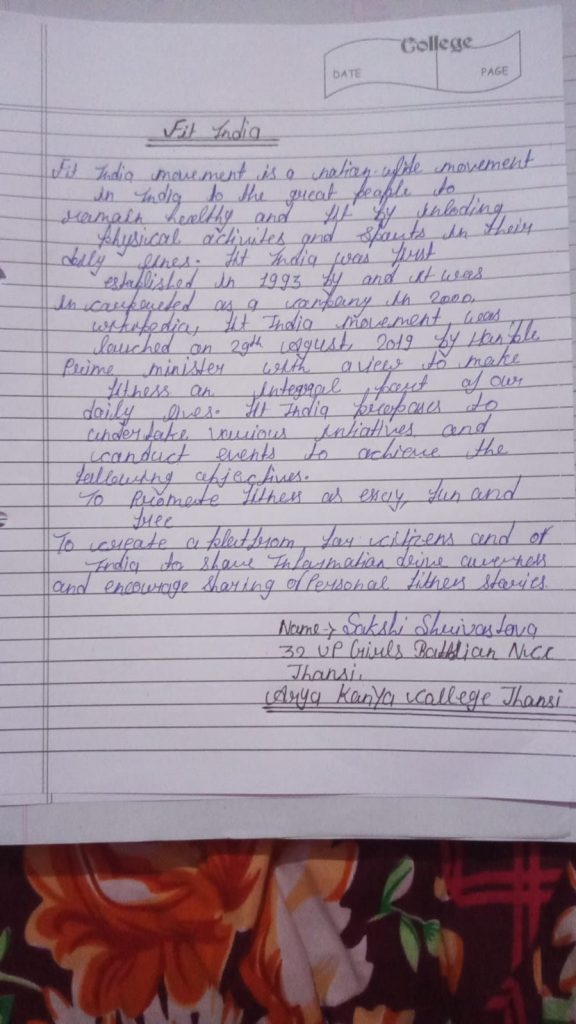 College
DATE PAGE
Fit India
Fit India movement is a nation-wide movement
in India to the great people to
remain healthy and fit by inloding
physical activites and sports in their
daily lives. Fit India was first
established in 1993 by and it was
In carporeted as a company in 2000,
wikipedia, fit India movement was
lauched on 29th August, 2019 by Hon'ble
Prime minister with a view to make
fitness an integral part of our
daily lives. Fit India proposes to
undertake various intiatives and
conduct events to achieve the
following objectives.
To Promote fitness as easy, fun and
free
To create a platfrom for citizens and of
India to share Information drive awerness
and encourage sharing of Personal fitness stories.
Name→ Sakshi Shrivastava
32 UP Girls Battlian Ncc
Jhansi,
Arya Kanya College Jhansi